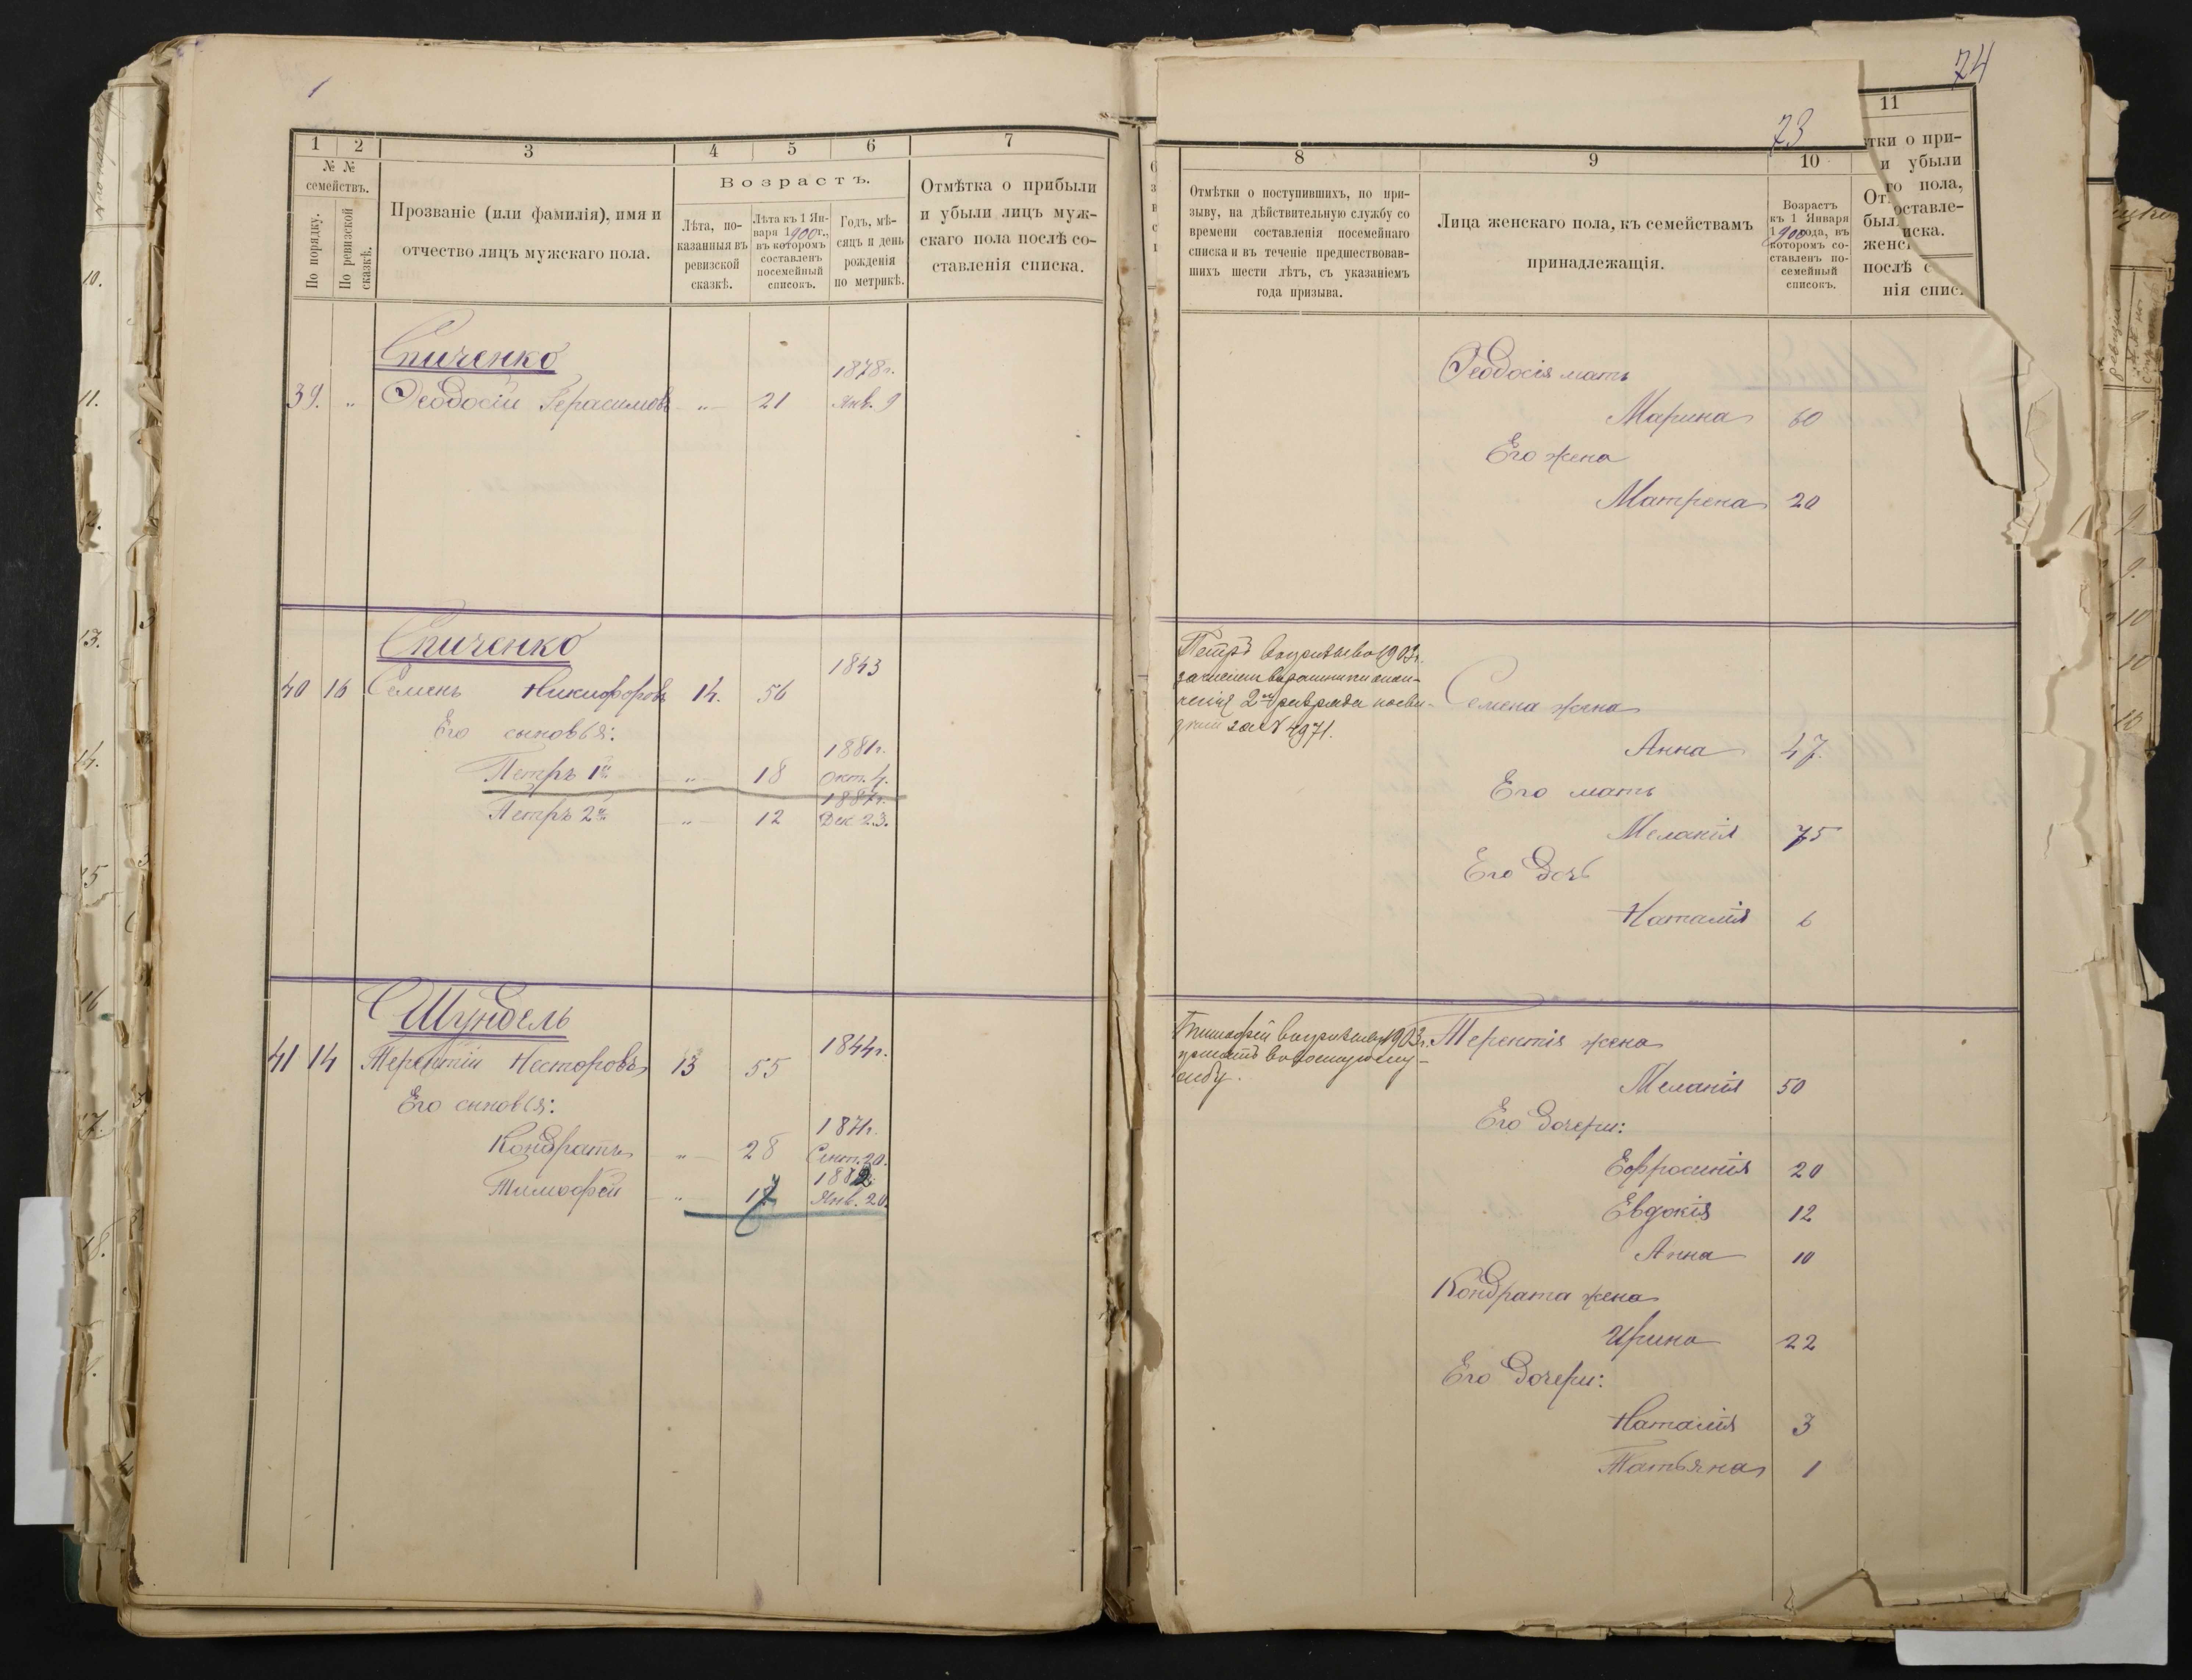 74
73
1 2 3 4 5 6 7
№ №
семействъ.
По порядку.
По ревизской сказкѣ.
Прозваніе (или фамилія), имя и
отчество лицъ мужскаго пола.
Возрастъ.
Лѣта, по-
казанныя въ
ревизской
сказкѣ.
Лѣта къ 1 Ян-
варя 1900 г.,
въ которомъ
составленъ
посемейный
списокъ.
Годъ, мѣ-
сяцъ и день
рожденія
по метрикѣ.
Отмѣтка о прибыли
и убыли лицъ муж-
скаго пола послѣ со-
ставленія списка.
Спиченко
1878 г.
39. „ Ѳеодосій Герасимовъ „ 21 Янв. 9
Спиченко
1843
40 16 Семенъ Никифоровъ 14. 56
Его сыновья:
1881 г.
Петръ 1й „ 18 Окт. 4.
1887 г.
Петръ 2й „ 12 Дек 23.
Шундель
1844 г.
41 14 Терентій Несторовъ 13 55
Его сыновья:
1871 г.
Кондратъ „ 28 Сент. 20.
1882
Тимофей „ 17 Янв. 20.
8 9 10 11
Отмѣтки о поступившихъ, по при-
зыву, на дѣйствительную службу со
времени составленія посемейнаго
списка и въ теченіе предшествовав-
шихъ шести лѣтъ, съ указаніемъ
года призыва.
Лица женскаго пола, къ семействамъ
принадлежащія.
Возрастъ
къ 1 Января
1900 года, въ
которомъ со-
ставленъ по-
семейный
списокъ.
тки о при-
и убыли
го пола,
оставле-
иска.
От.
был
женс
послѣ с
нія спис.
Ѳеодосія мать
Марина 60
Его жена
Матрена 20
Петръ въ призывъ 1903 г.
зачисленъ въ ратники опол-
ченія 2го разряда
за № 4971.
Семена жена
Анна 47.
Его мать
Меланія 75
Его дочь
Наталія 6
Тимофей въ призывъ 1903 г.
принятъ въ военную слу-
жбу.
Терентія жена
Меланія 50
Его дочери:
Ефросинія 20
Евдокія 12
Анна 10
Кондрата жена
Ирина 22
Его дочери:
Наталія 3
Татьяна 1